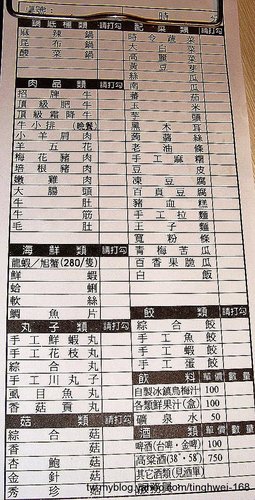 鍋底種類 請打勾
麻辣鍋
昆布鍋
酸菜鍋
肉品類 請打勾
招牌牛
頂級肥牛
頂級霜降牛
牛小排(晚餐)
小羊肩肉
羊五花
梅花豬肉
培根豬肉
嫩雞肉
大腸頭
牛肚
牛筋
毛肚
海鮮類 請打勾
龍蝦/旭蟹(280/隻)
鮮蝦
蛤蜊
軟絲
鯛魚片
丸子類 請打勾
手工鮮蝦丸
手工花枝丸
綜合丸
手工川丸子
虱目魚丸
香菇貢丸
菇類 請打勾
綜合菇
香菇
杏鮑菇
金針菇
秀珍菇
配菜類 請打勾
時令蔬菜
大白菜
高麗菜
黃豆芽
絲瓜
南瓜
番茄
玉米
芋頭
黑木耳
蒟蒻絲
老油條
手工麻糬
豆皮
凍豆腐
百頁豆腐
豬血糕
手工拉麵
王子麵
寬粉條
青梅苦瓜
百香果脆瓜
白飯
餃類 請打勾
綜合餃
手工魚餃
手工蝦餃
手工蛋餃
飲料 單價 數量
自製冰鎮烏梅汁 100
各類鮮果汁(盒) 100
礦泉水 50
酒類 單價 數量
啤酒(台啤·金啤) 100
高粱酒(38·58) 750
其它酒類(見酒單)
www.myblog.yahoo.com/tinghwei-168